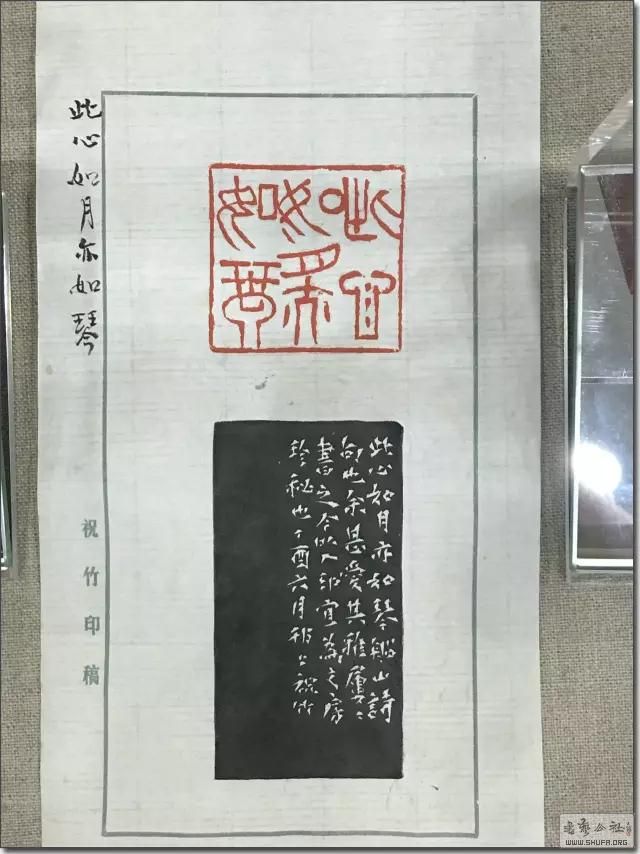 此心如月亦如琴
此心如月亦如琴
此心如月亦如琴船山詩
句也余甚愛其雅屢々
書之今以入印宜為
珍秘也丁酉六月 祝竹
祝竹印稿
書艺公社
WWW.SHUFA.ORG